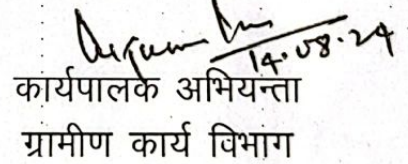 14.08.24
कार्यपालक अभियन्ता
ग्रामीण कार्य विभाग